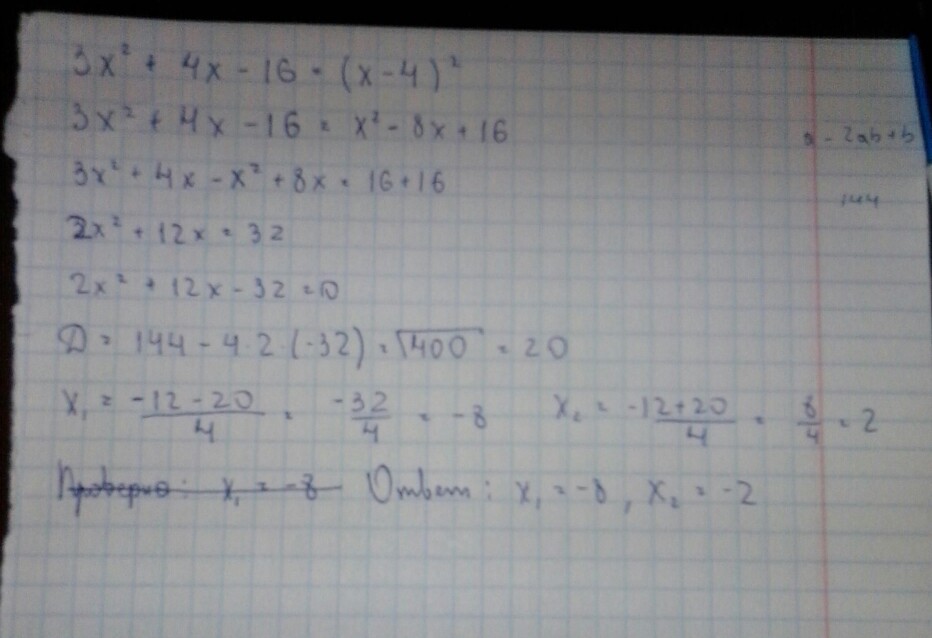 3x² + 4x - 16 = (x - 4)²
3x² + 4x - 16 = x² - 8x + 16
a - 2ab + b
3x² + 4x - x² + 8x = 16 + 16
144
2x² + 12x = 32
2x² + 12x - 32 = 0
D = 144 - 4·2·(-32) = √400 = 20
x₁ = (-12 - 20)/4 = -32/4 = -8 x₂ = (-12 + 20)/4 = 8/4 = 2
Проверка: x₁ = -8 Ответ: x₁ = -8, x₂ = -2